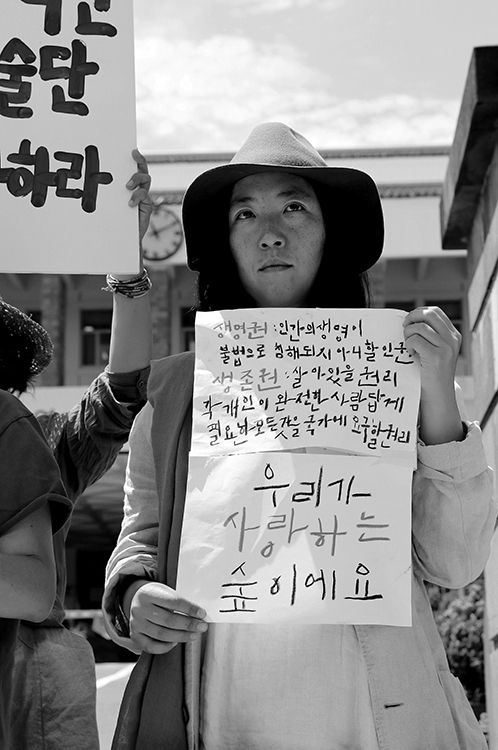 술단
하라
생명권 : 인간의 생명이
불법으로 침해되지 아니할 인권.
생존권 : 살아있을 권리
각 개인이 완전한 사람답게
필요한 모든 것을 국가에 요구할 권리
우리가
사랑하는
숲이에요